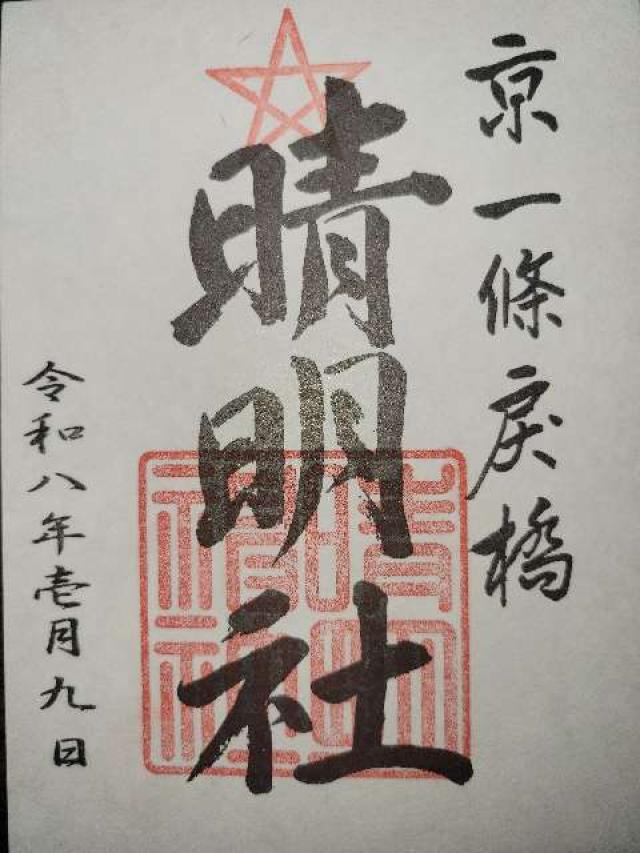 京一條戻橋
晴明社
令和八年壱月九日